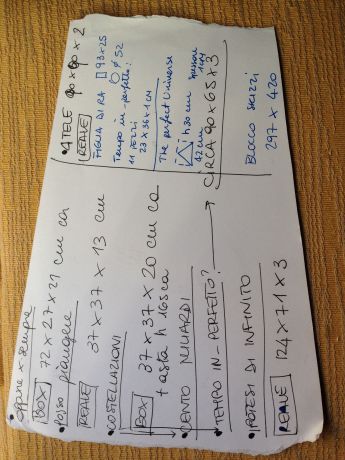 oppure x sempre
BOX 72 x 27 x 21 cm ca
• posso piangere
REALE 37 x 37 x 13 cm
• COSTELLAZIONI
BOX 37 x 37 x 20 cm ca
+ asta h 165 ca
• CENTO MILIARDI
• TEMPO IN-PERFETTO? → CIRCA 90 x 65 x 3
• IPOTESI DI INFINITO
REALE 124 x 71 x 3
• 4 TELE 90 x 90 x 2
REALE
FIGLIA DI RA 93 x 25
ø 52
Tempo im perfetto:
11 pezzi
23 x 36 x 1 cm
The perfect Universe
h 30 cm
42 cm
1 cm
BLOCCO SCHIZZI
297 x 420